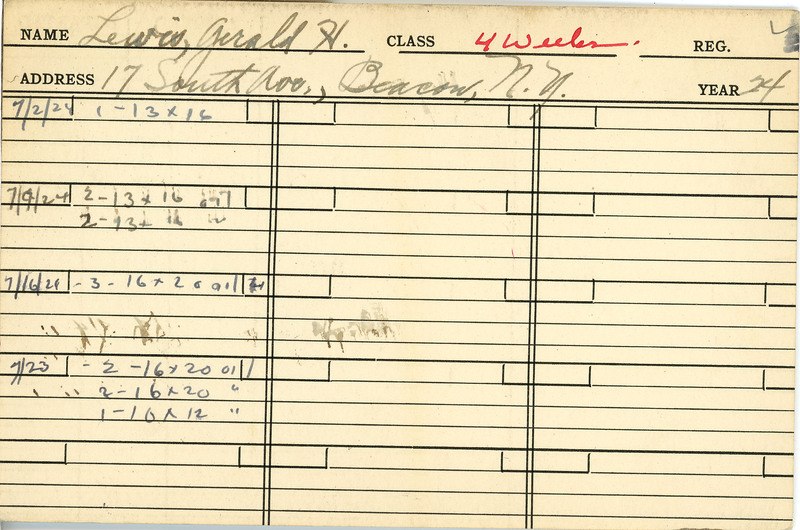 NAME Lewis, Gerald H. CLASS 4 Weeks. REG.
ADDRESS 17 South Ave., Beacon, N.Y. YEAR 24
7/2/24 1-13x16
7/9/24 2-13x16 oil
2-13x16 "
7/16/24 -3-16x20 oil
" "
7/23 -2-16x20 oil
" " 2-16x20 "
1-16x12 "